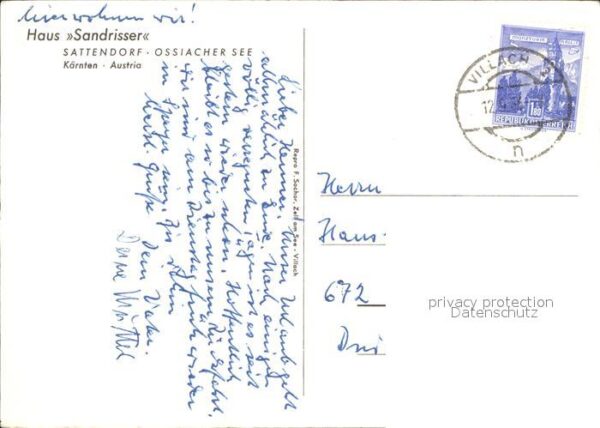 hier wohnen wir!
Haus »Sandrisser«
SATTENDORF · OSSIACHER SEE
Kärnten · Austria
Unser Urlaub geht
allmählich zu Ende. Nach einigen
völlig verregneten Tagen ist es seit
gestern wieder schön. Hoffentlich
bleibt es so bis zu unserer Abfahrt.
Wir sind am Dienstag wieder
in
Herzl. Grüße Dein Vater.
Deine Mutter
Repro F. Sochor, Zell am See - Villach
VILLACH
12
n
REPUBLIK ÖSTERREICH
Herrn
Hans
672
privacy protection
Datenschutz